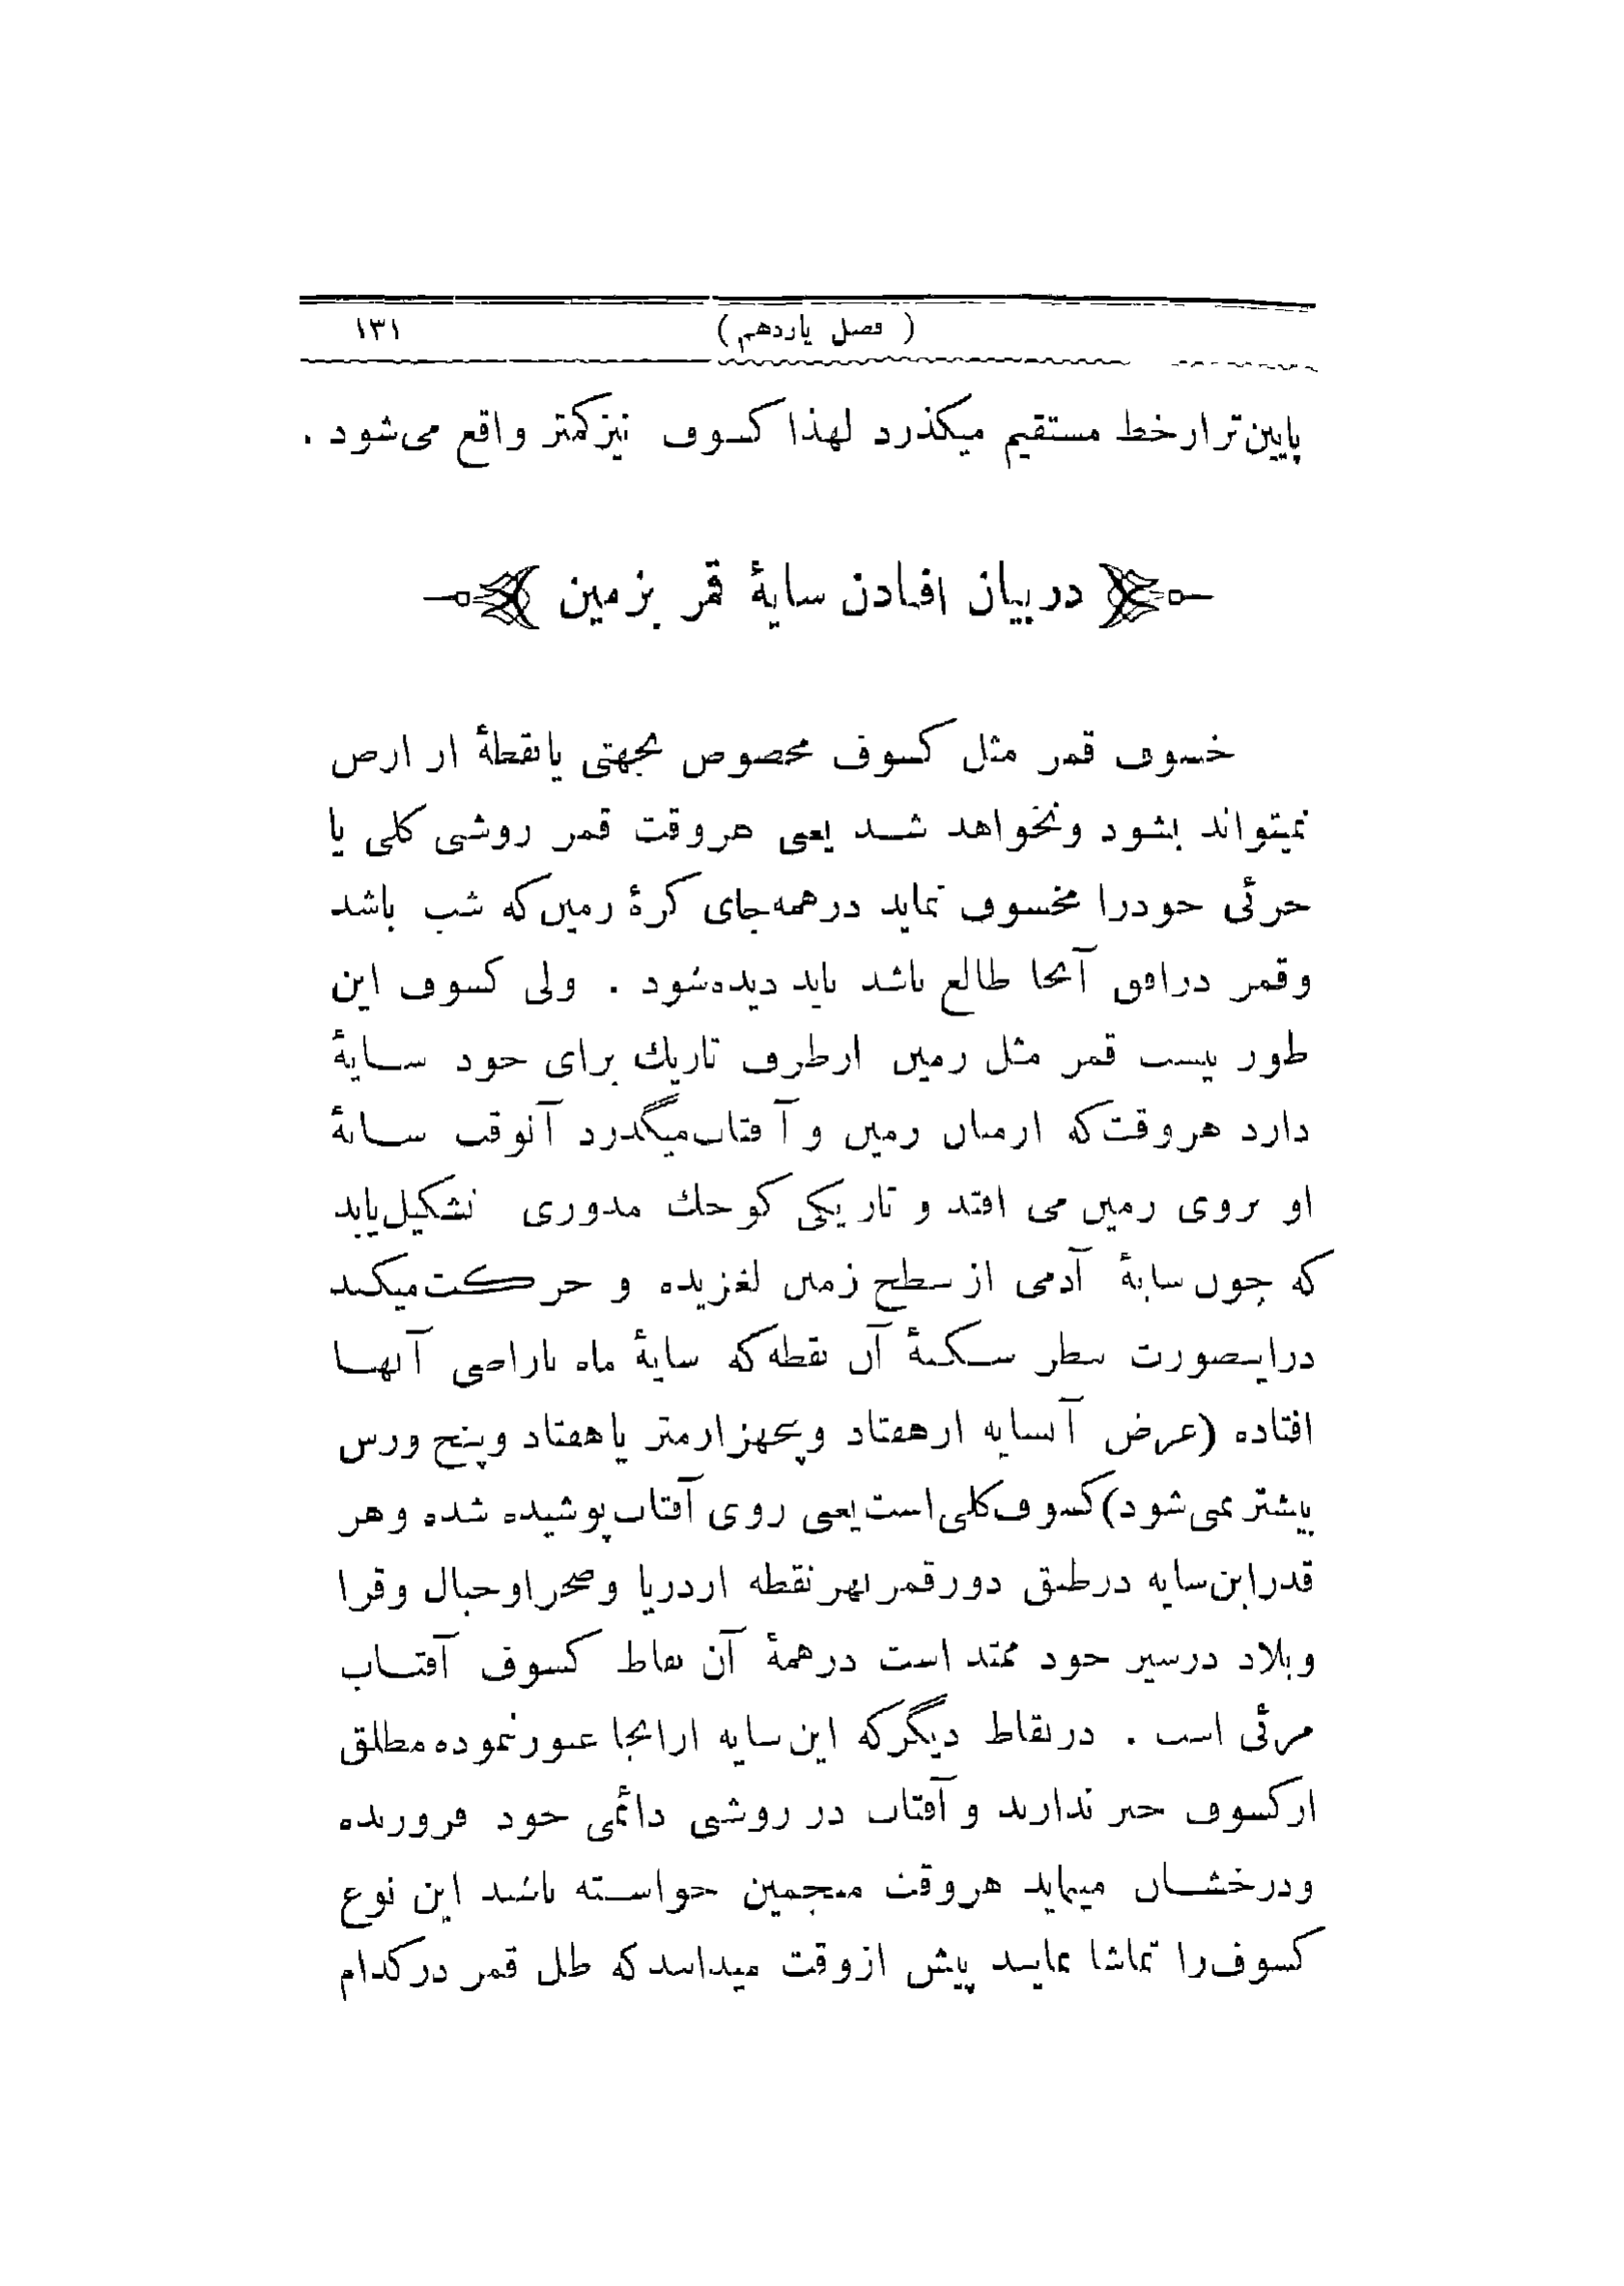 ( فصل یازدهم ) ۱۳۱
پایین‌تر از خط مستقیم میکذرد لهذا کسوف نیز کمتر واقع می‌شود .
در بیان افتادن سایهٔ قمر بزمین
خسوف قمر مثل کسوف مخصوص بجهتی یا نقطهٔ از ارض
نمیتواند بشود و نخواهد شد یعنی هر وقت قمر روشنی کلی یا
جزئی خود را مخسوف نماید در همه جای کرهٔ زمین که شب باشد
و قمر در افق آنجا طالع باشد باید دیده شود . ولی کسوف این
طور نیست قمر مثل زمین از طرف تاریك برای خود سایهٔ
دارد هر وقت که از میان زمین و آفتاب میگذرد آنوقت سایهٔ
او بروی زمین می افتد و تاریکی کوچك مدوری تشکیل یابد
که چون سایهٔ آدمی از سطح زمین لغزیده و حرکت میکند
در اینصورت بنظر سکنهٔ آن نقطه که سایهٔ ماه باراضی آنها
افتاده (عرض آنسایه از هفتاد و پنجهزار متر یا هفتاد و پنج ورس
بیشتر نمی شود) کسوف کلی است یعنی روی آفتاب پوشیده شده و هر
قدر این سایه در طبق دور قمر بهر نقطه از دریا و صحرا و جبال و قرا
و بلاد در سیر خود ممتد است در همهٔ آن نقاط کسوف آفتاب
مرئی است . در نقاط دیگر که این سایه از انجا عبور ننموده مطلق
از کسوف خبر ندارند و آفتاب در روشنی دائمی خود فروزنده
و درخشان مینماید هر وقت منجمین خواسته باشند این نوع
کسوف را تماشا نمایند پیش از وقت میدانند که ظل قمر در کدام